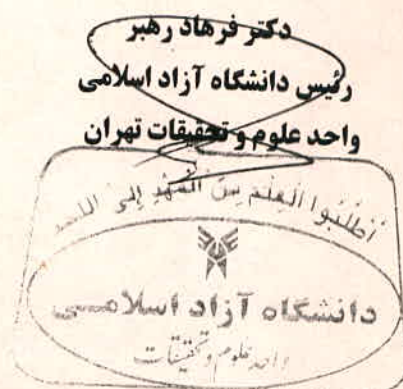 دکتر فرهاد رهبر
رئیس دانشگاه آزاد اسلامی
واحد علوم و تحقیقات تهران
اُطْلُبُوا الْعِلْمَ مِنَ الْمَهْدِ إِلَى اللَّحْدِ
دانشگاه آزاد اسلامی
واحد علوم و تحقیقات